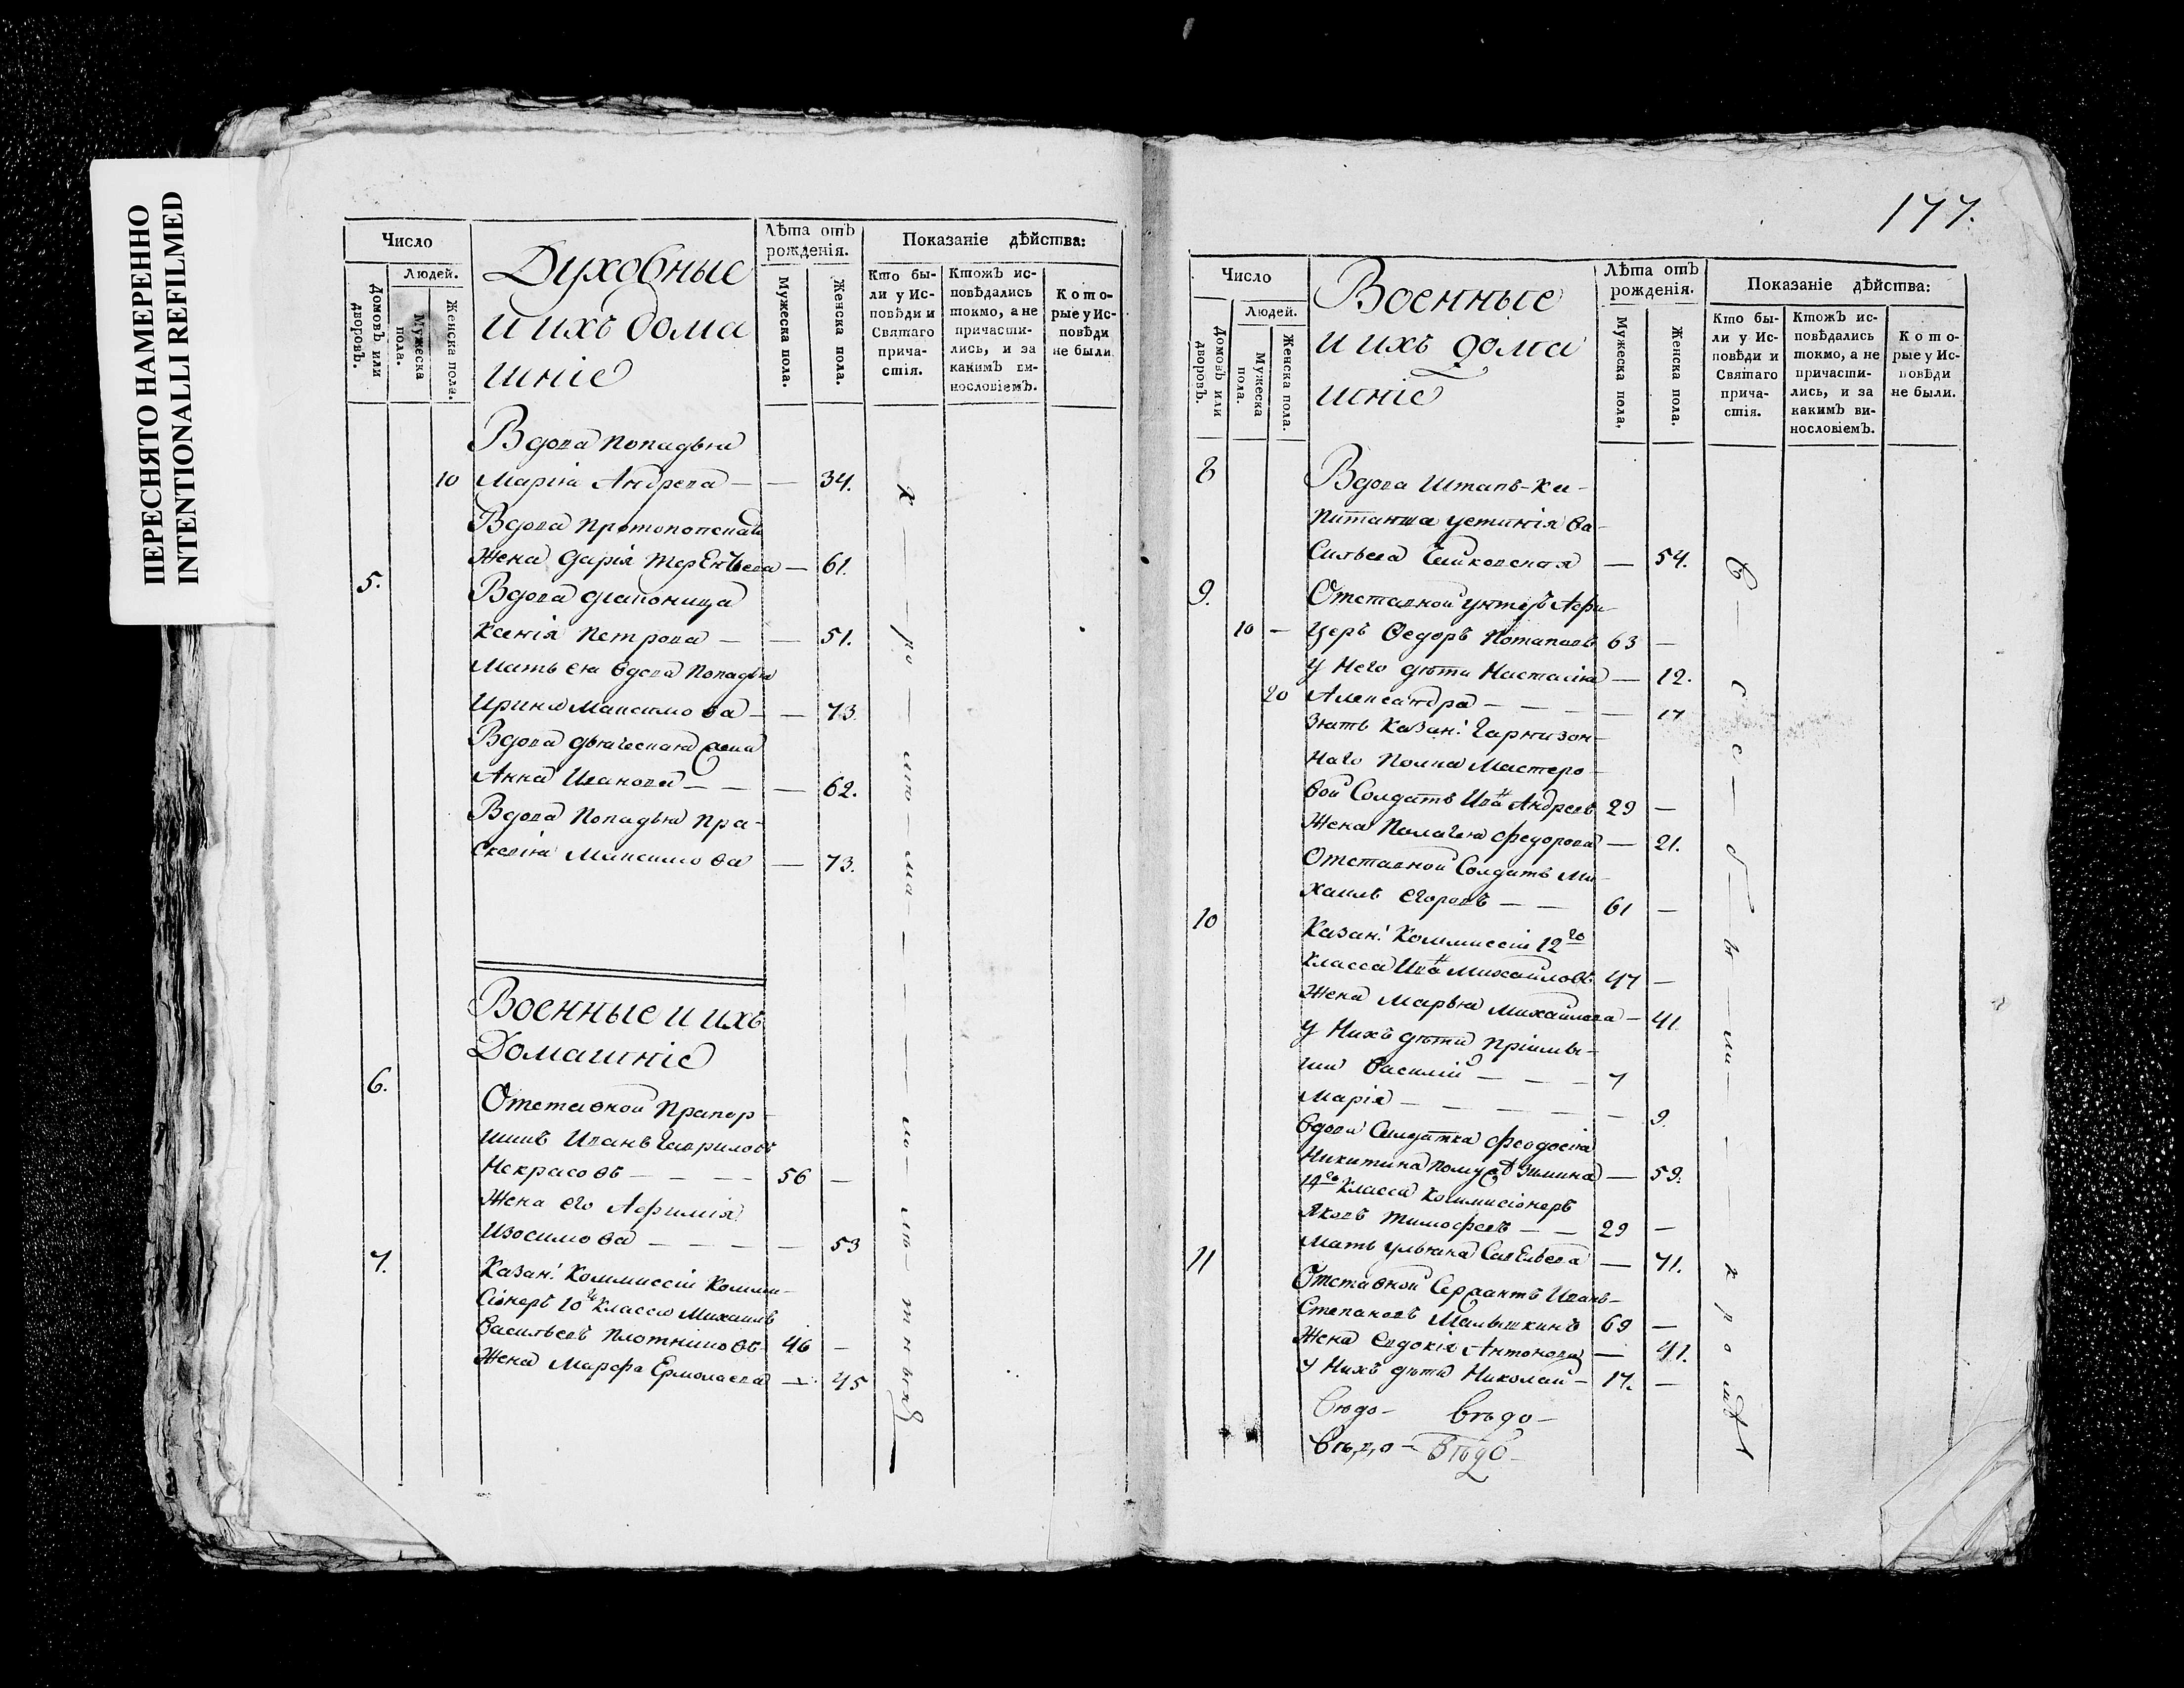 ПЕРЕСНЯТО НАМЕРЕННО
INTENTIONALLI REFILMED
Число
Людей.
Домовъ или дворовъ.
Мужеска пола.
Женска пола.
Духовные
и ихъ дома
шніе
Лѣта отъ рожденія.
Мужеска пола.
Женска пола.
Показаніе дѣйства:
Кто бы-
ли у Ис-
повѣди и
Святаго
прича-
стія.
Ктожъ ис-
повѣдались
токмо, а не
причасти-
лись, и за
какимъ ви-
нословіемъ.
Кото-
рые у Ис-
повѣди
не были.
Вдова попадья
10 Марія Андрева — — 34.
Вдова протопопская
Жена Дарія Терентьева — 61.
5. Вдова дьяконица
Ксенія Петрова — — 51.
Мать ея вдова попадья
Ирина Максимова — — 73.
Вдова дьяческая жена
Анна Иванова — — — 62.
Вдова попадья Пра-
сковія Максимова — 73.
Военные и ихъ
Домашніе
6. Отставной прапор-
щикъ Иванъ Гавриловъ
Некрасовъ — — — — 56 —
Жена его Афимія
Изосимова — — — — 53
7. Казан: Коммиссіи Комми-
сіонеръ 10го класса Михаилъ
Васильевъ Плотниковъ 46 —
Жена Марфа Ермолаева — 45
177.
Число
Людей.
Домовъ или дворовъ.
Мужеска пола.
Женска пола.
Военные
и ихъ дома
шніе
Лѣта отъ рожденія.
Мужеска пола.
Женска пола.
Показаніе дѣйства:
Кто бы-
ли у Ис-
повѣди и
Святаго
прича-
стія.
Ктожъ ис-
повѣдались
токмо, а не
причасти-
лись, и за
какимъ ви-
нословіемъ.
Кото-
рые у Ис-
повѣди
не были.
8 Вдова Штапъ-Ка-
питанша Устинія Ва-
сильева — 54.
9. Отставной унтеръ Афи-
10 — церъ Федоръ Потаповъ 63 —
у него дѣти Настасія — 12.
20 Александра — — — — 17
Зять Казан: Гарнизон-
наго полка Мастеро-
вой Солдатъ Ива Андреевъ 29 —
Жена Пелагея Федорова — 21.
Отставной Солдатъ Ми-
хаилъ Егоровъ — — 61 —
10 Казан: Коммиссіи 12го
класса Ива Михайловъ 47 —
Жена Марья Михайлова — 41.
у нихъ дѣти
Василій — — — 7
Марія — — — — — 9.
Вдова Солдатка Феодосія
Никитина Зимина — 59.
14го класса коммисіонеръ
Яковъ Тимофеевъ — — 29 —
Мать Ульяна Савельева — 71.
11 Отставной Сержантъ Иванъ
Степановъ Малышкинъ 69 —
Жена Евдокія Антонова — 41.
у нихъ дѣти Николай — 17. —